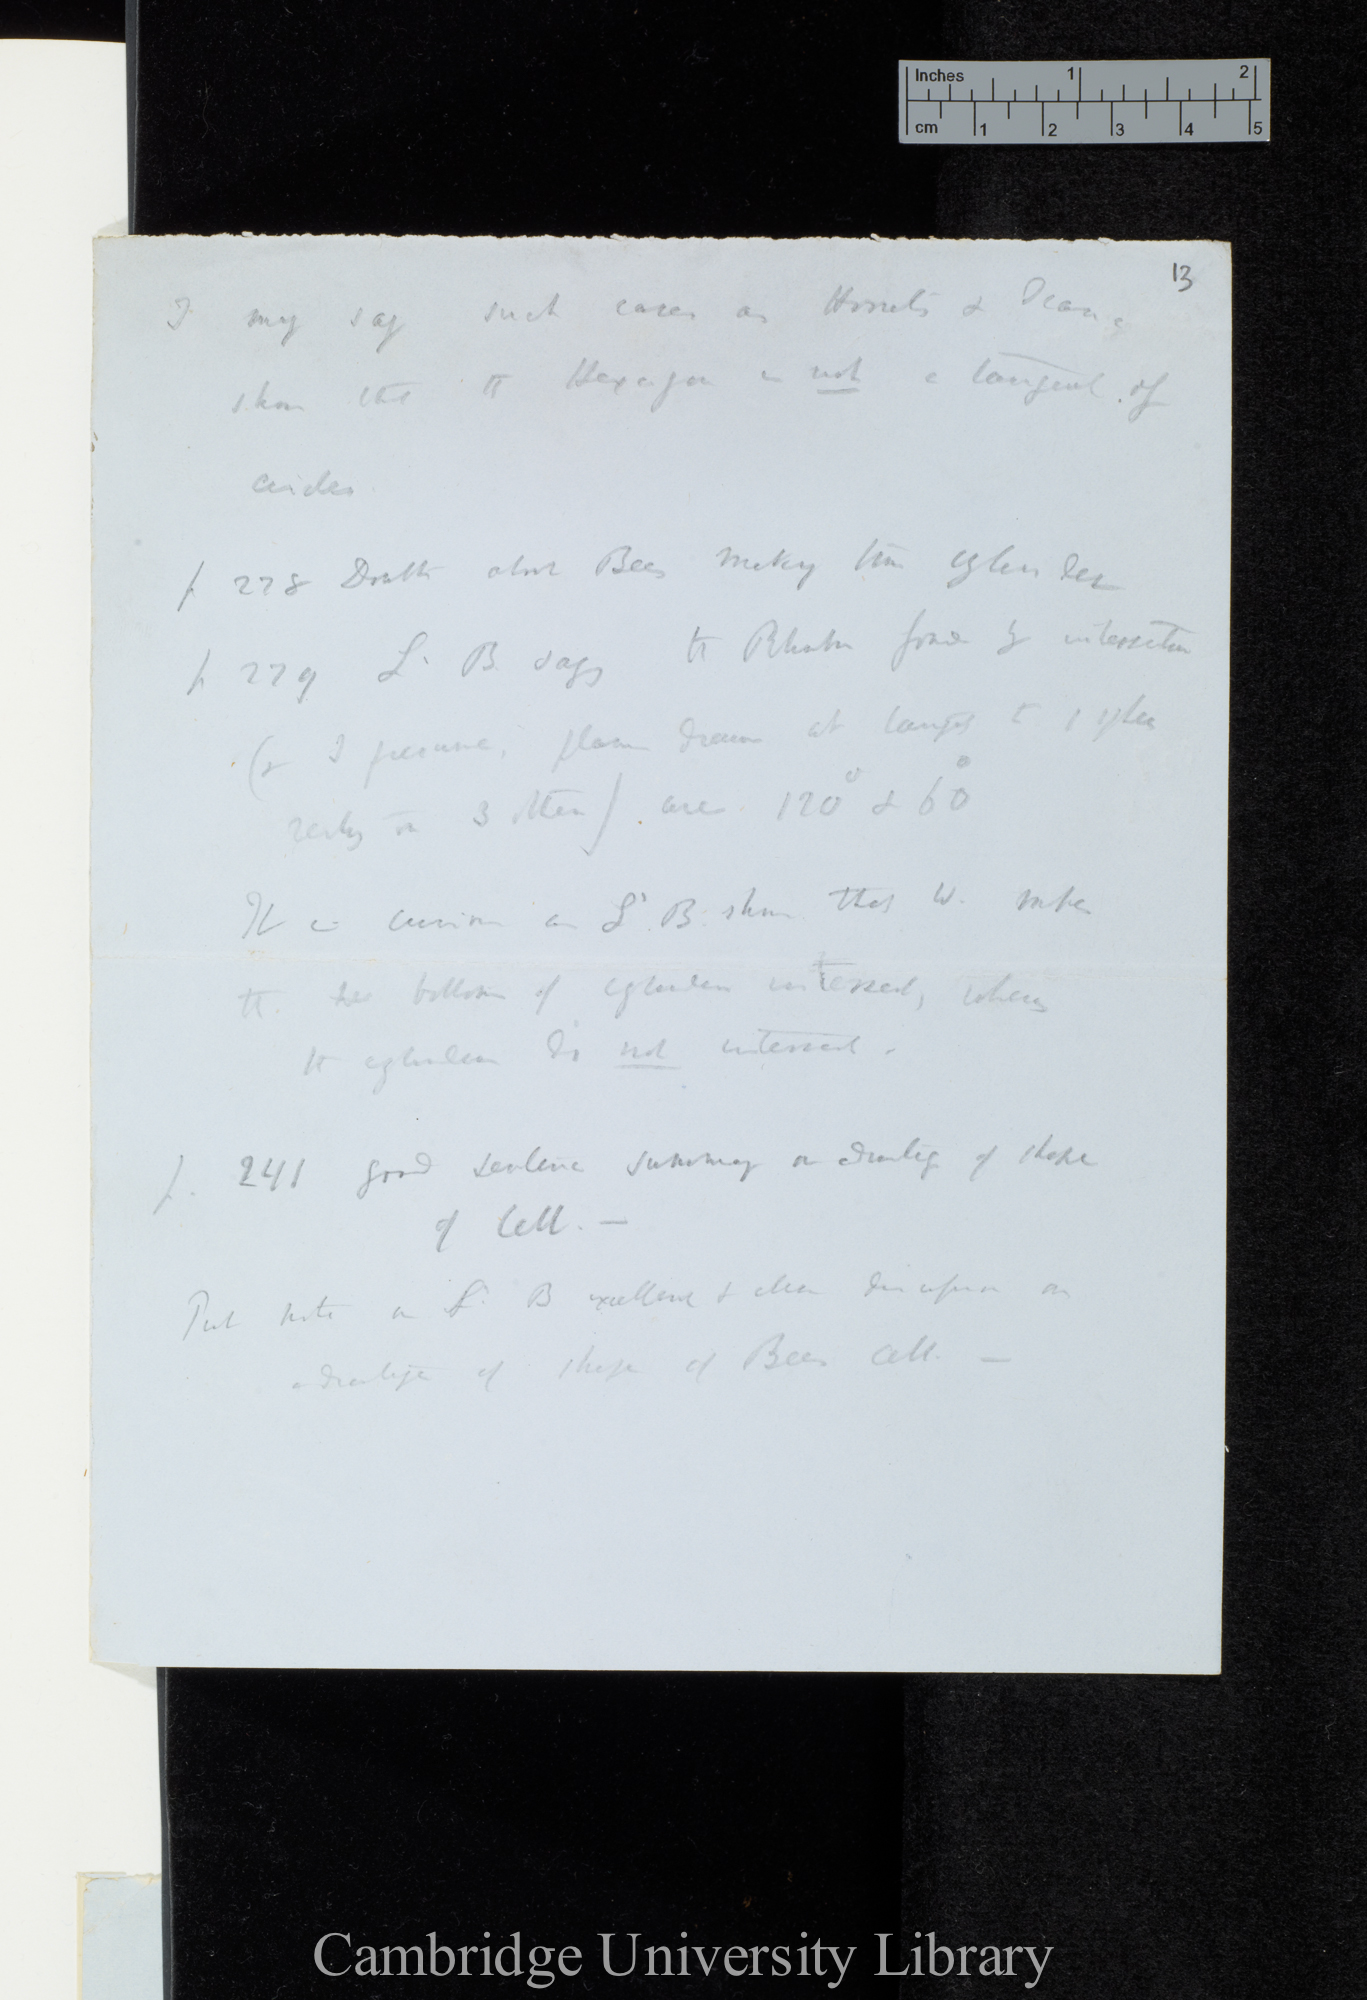 Inches 1 2
cm 1 2 3 4 5
13
I may say such cases as Hornets &
show that the Hexagon is not a tangent of
circles
p 228 Doubts about Bees making true cylinders
p 229 Ld B. says the Rhombs formed by intersection
(& I presume, planes drawn at tangts to 1 cylinder
resting on 3 others) are 120° & 60°
It is curious as Ld. B. shows that W. makes
the bottoms of cylinders intersect, whereas
the cylinders do not intersect.
p. 241 good sentence summary on advantage of shape
of Cell. —
Put note on Ld. B excellent & clear discussion on
advantage of shape of Bees Cell. —
Cambridge University Library